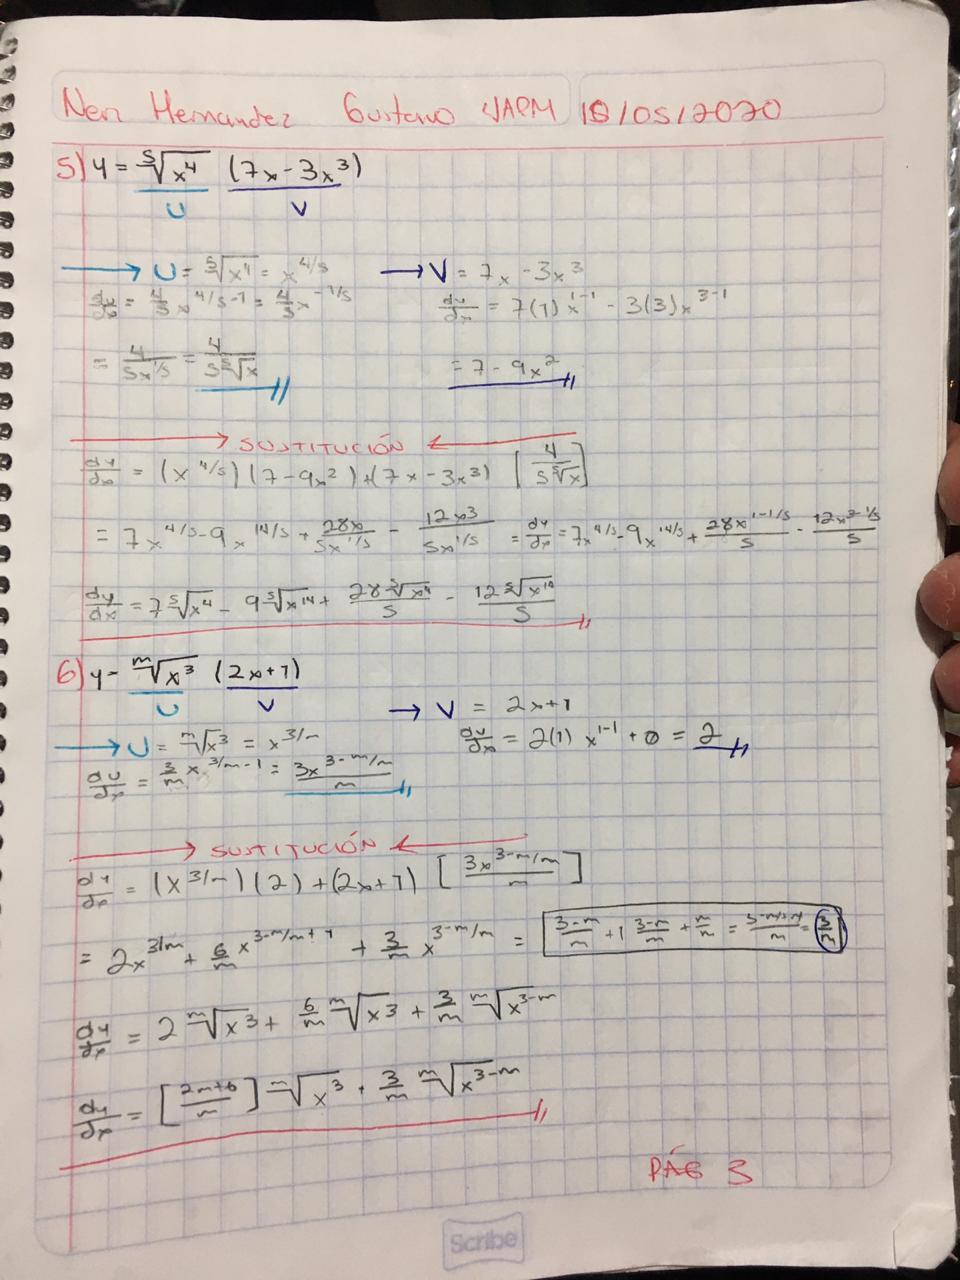 Neri Hernandez Gustavo VAPM 18/05/2020
5) y = ⁵√x⁴ (7x - 3x³)
U V
→ U = ⁵√x⁴ = x^4/5 → V = 7x - 3x³
du/dx = 4/5 x^4/5-1 = 4/5 x^-1/5 dv/dx = 7(1)x^1-1 - 3(3)x^3-1
= 4/5x^1/5 = 4/5⁵√x = 7 - 9x²
→ SUSTITUCIÓN ←
dy/dx = (x^4/5)(7-9x²)+(7x-3x³) [4/5⁵√x]
= 7x^4/5 - 9x^14/5 + 28x/5x^1/5 - 12x³/5x^1/5 = dy/dx = 7x^4/5 - 9x^14/5 + 28x^1-1/5/5 - 12x^3-1/5/5
dy/dx = 7⁵√x⁴ - 9⁵√x¹⁴ + 28⁵√x⁴/5 - 12⁵√x¹⁴/5
6) y = ᵐ√x³ (2x+1)
U V
→ V = 2x+1
→ U = ᵐ√x³ = x^3/m dv/dx = 2(1) x^1-1 + 0 = 2
du/dx = 3/m x^3/m-1 = 3x^3-m/m/m
→ SUSTITUCIÓN ←
dy/dx = (x^3/m)(2)+(2x+1) [3x^3-m/m/m]
= 2x^3/m + 6/m x^3-m/m+1 + 3/m x^3-m/m = 3-m/m + 1 3-m/m + m/m = 3-m+m/m = 3/m
dy/dx = 2 ᵐ√x³ + 6/m ᵐ√x³ + 3/m ᵐ√x^3-m
dy/dx = [2m+6/m] ᵐ√x³ + 3/m ᵐ√x^3-m
PÁG 3
Scribe